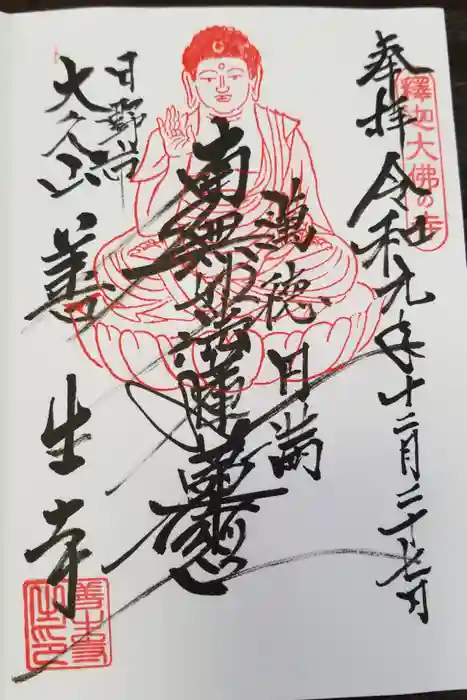 奉拝 令和元年十二月二十七日
釋迦大佛の寺
萬徳円満
南無妙法蓮華経
日野市
大久山
善生寺
善生寺印